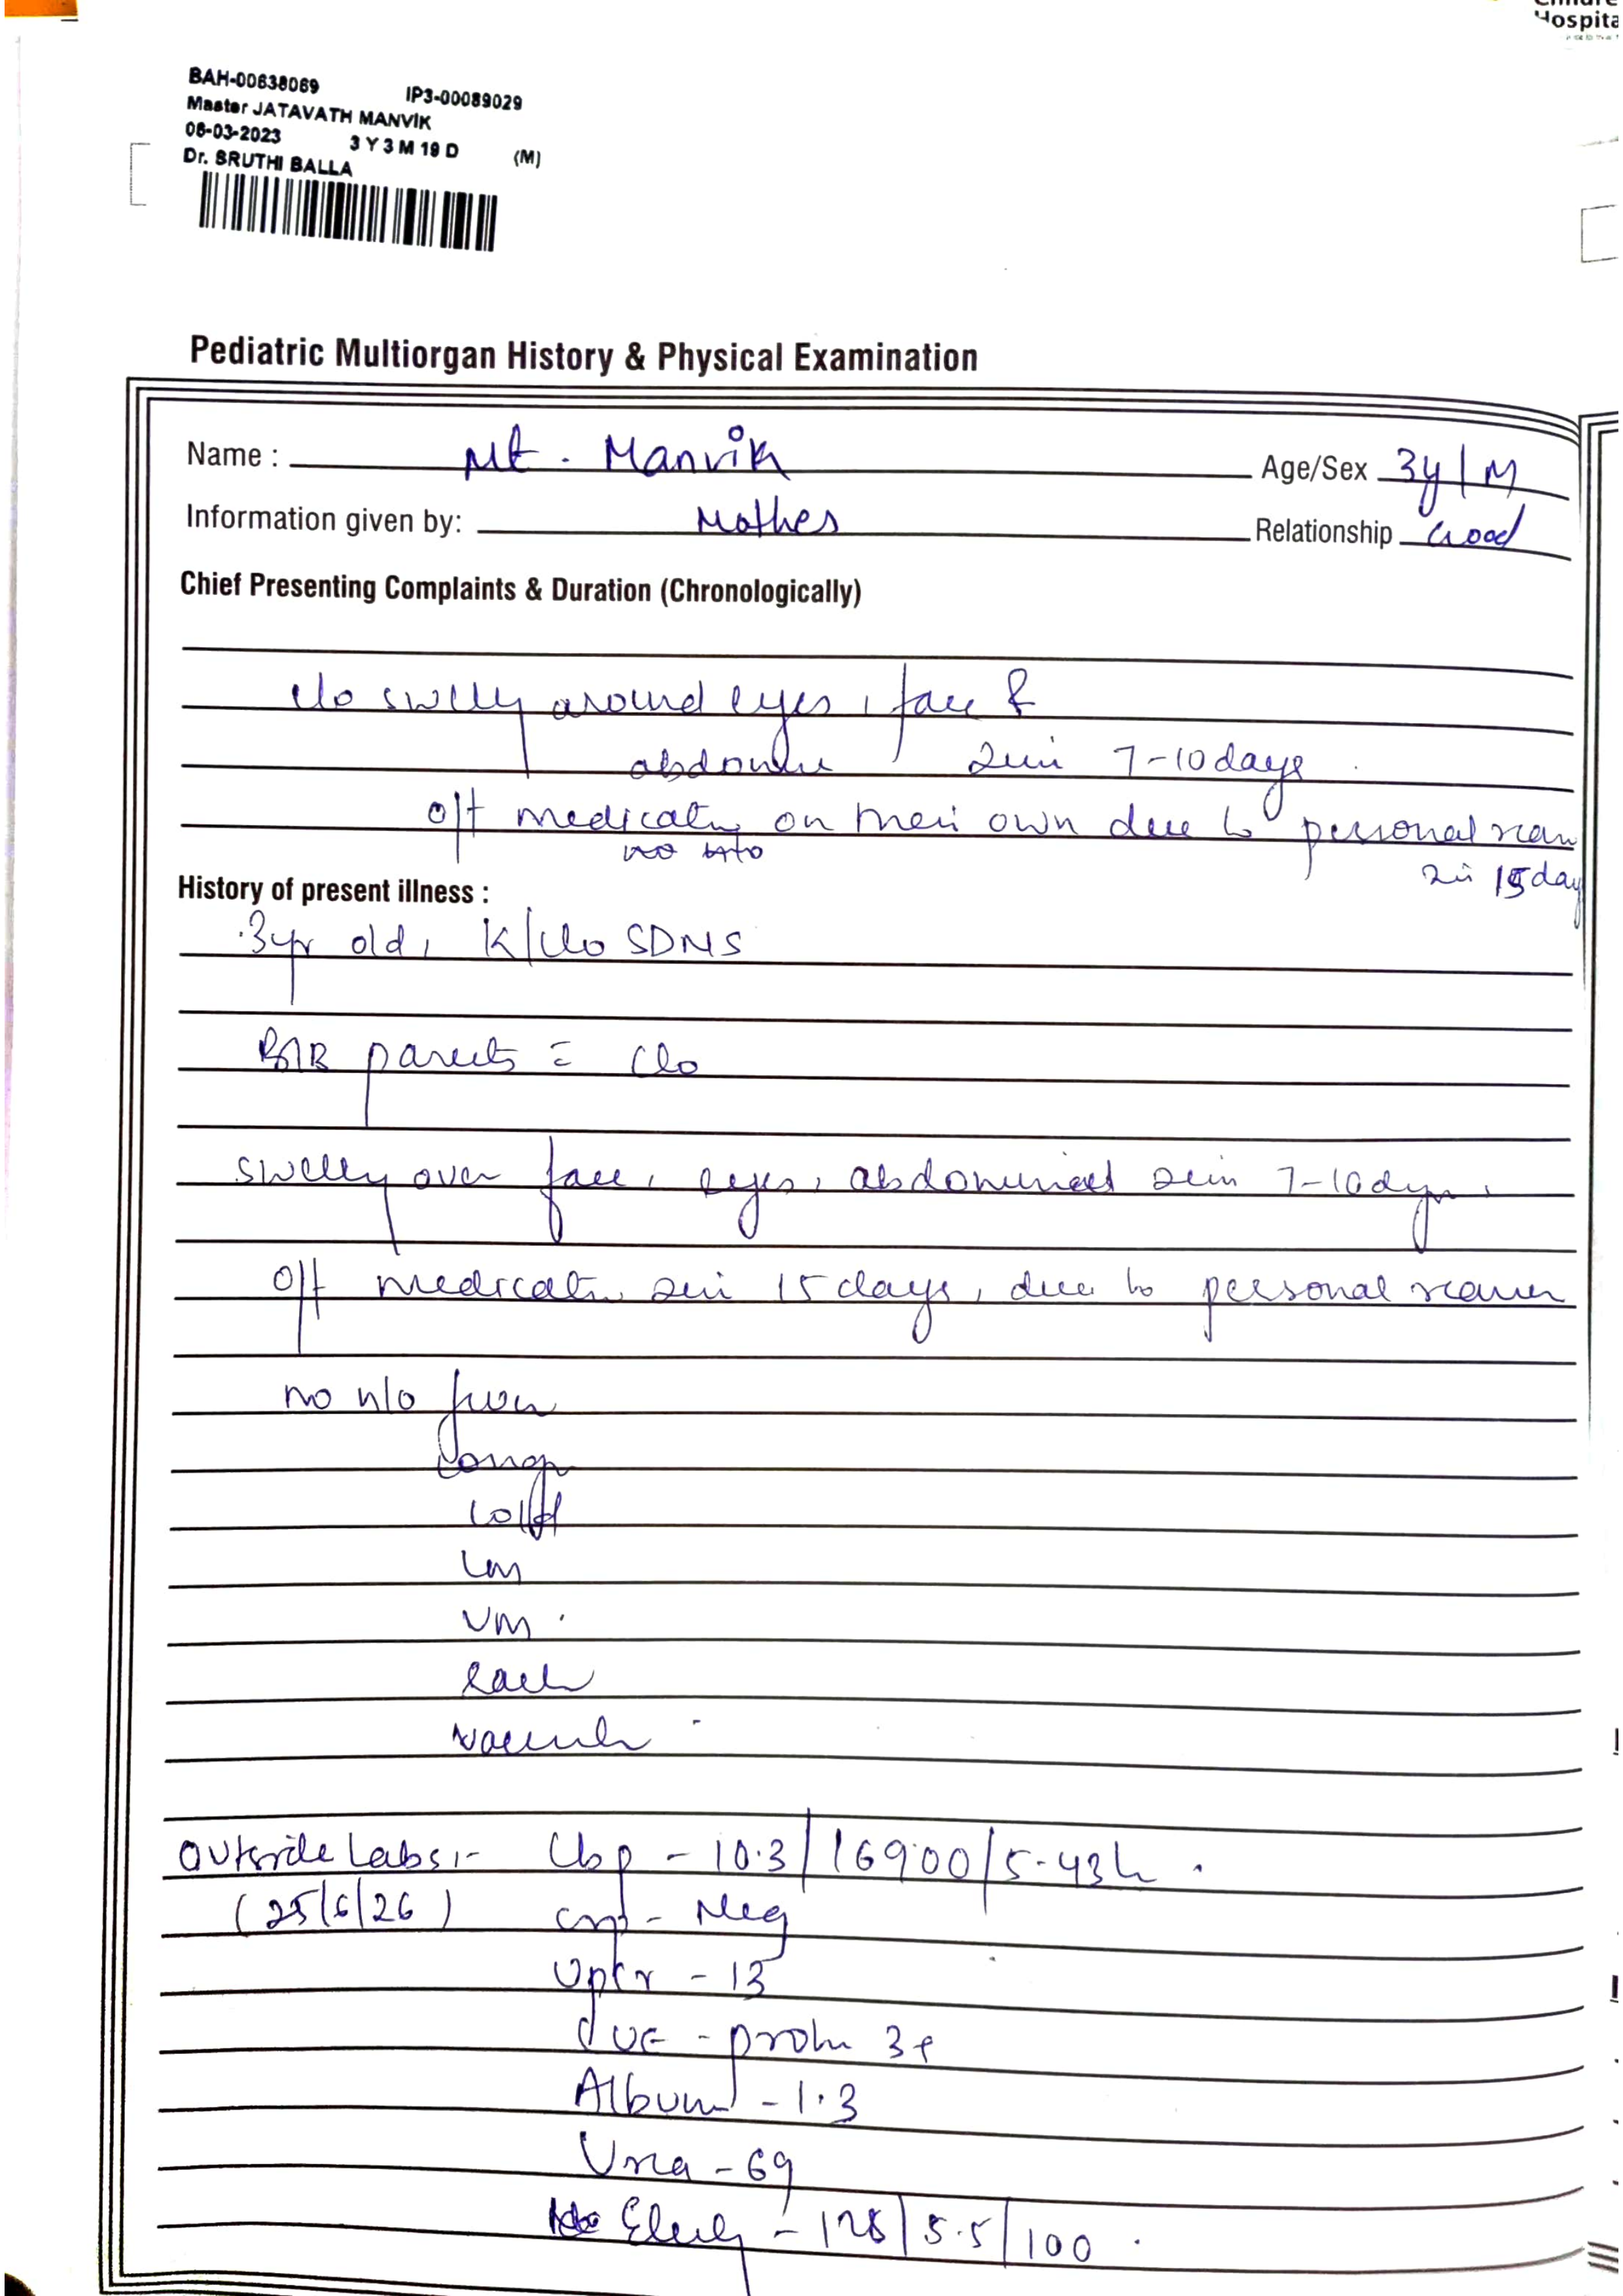 Hospita
BAH-00638069 IP3-00089029
Master JATAVATH MANVIK
08-03-2023 3 Y 3 M 19 D (M)
Dr. SRUTHI BALLA
Pediatric Multiorgan History & Physical Examination
Name : Mt. Manvik Age/Sex 3y/M
Information given by: Mother Relationship Good
Chief Presenting Complaints & Duration (Chronologically)
c/o swelly around eyes, face &
abdomen 7-10 days
off medicatn on their own due to personal
15 day
History of present illness :
3yr old, K/c/o SDNS
BIB parents c c/o
swelly over face, eyes, abdominal 7-10 dys
off medicatn 15 days, due to personal
no h/o fever
Rash
Outside Labs :- Cbp - 10.3/16900/5.43L
(25/6/26) crp - Neg
Upcr - 13
CUE - protn 3+
Album - 1.3
Urea - 69
Elecly - 128/5.5/100